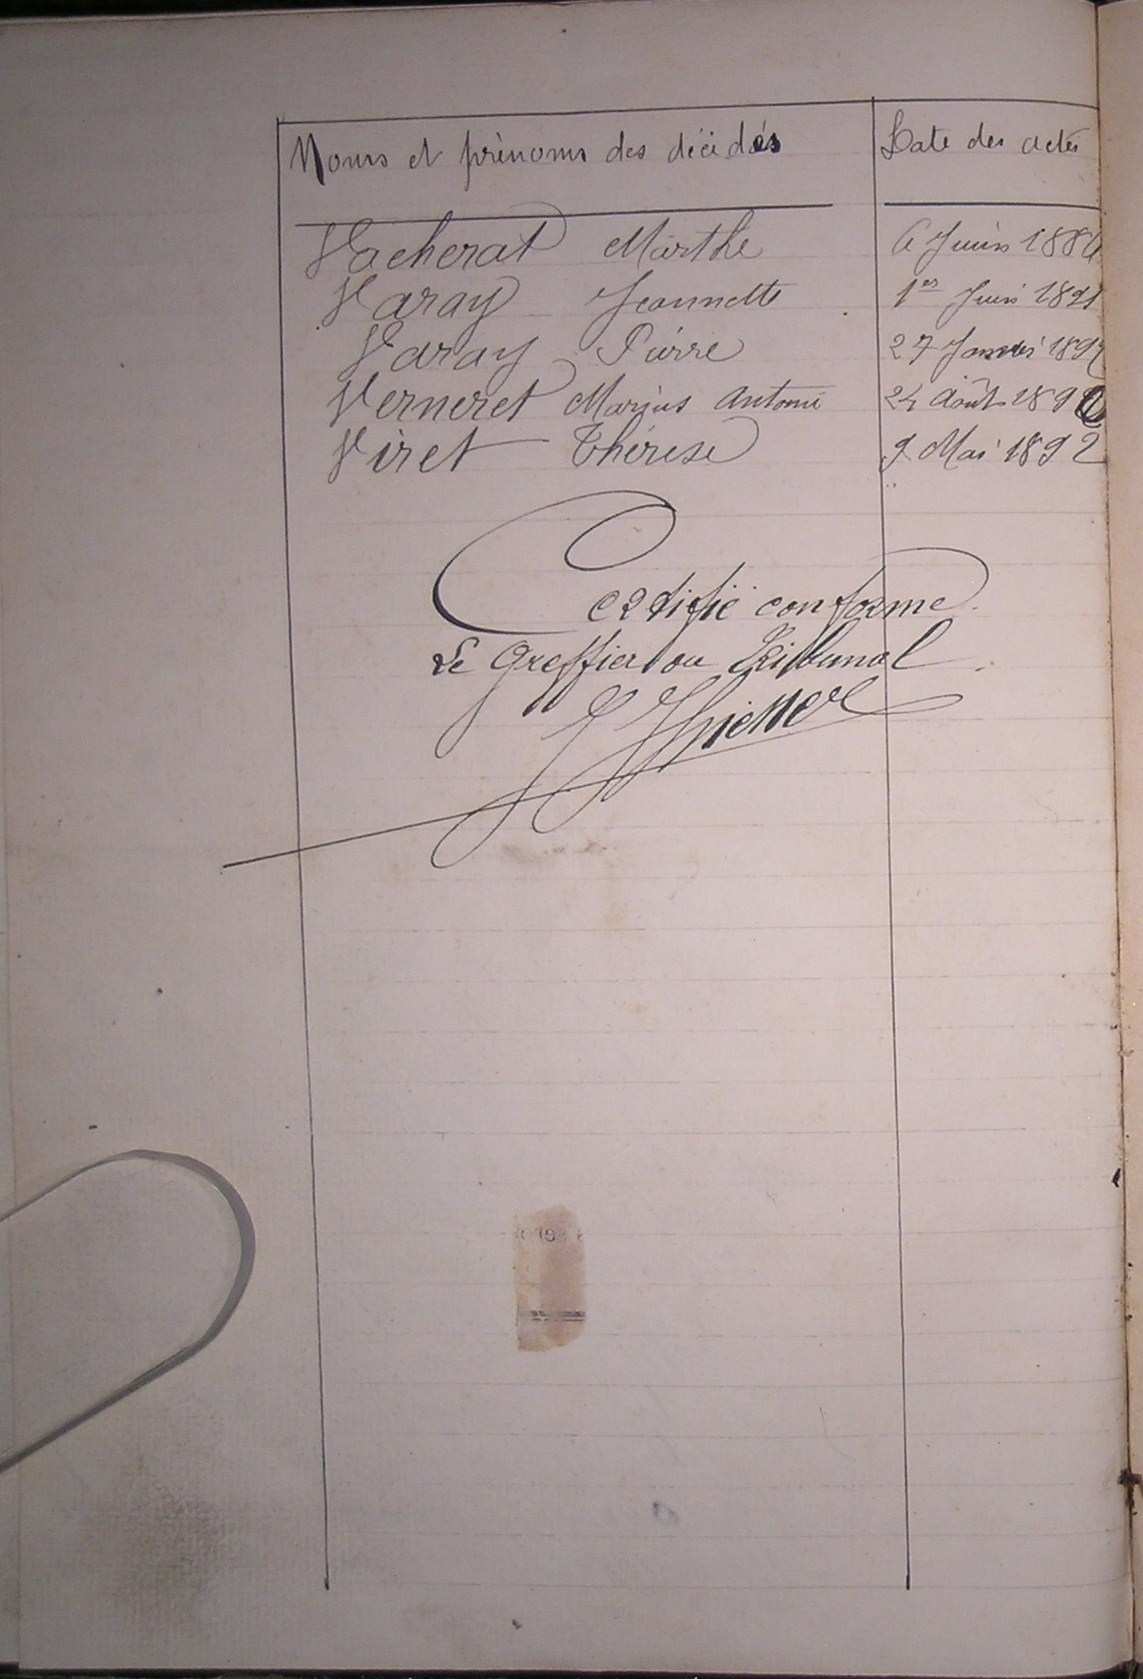 Noms et prénoms des décédés Date des actes
Vacherat Marthe 6 Juin 188
Varay Jeannette 1er Juin 1891
Varay Pierre 27 Janvier 189
Verneret Marius Antoine 24 Août 189
Viret Thérèse 9 Mai 1892
Certifié conforme
Le Greffier du Tribunal